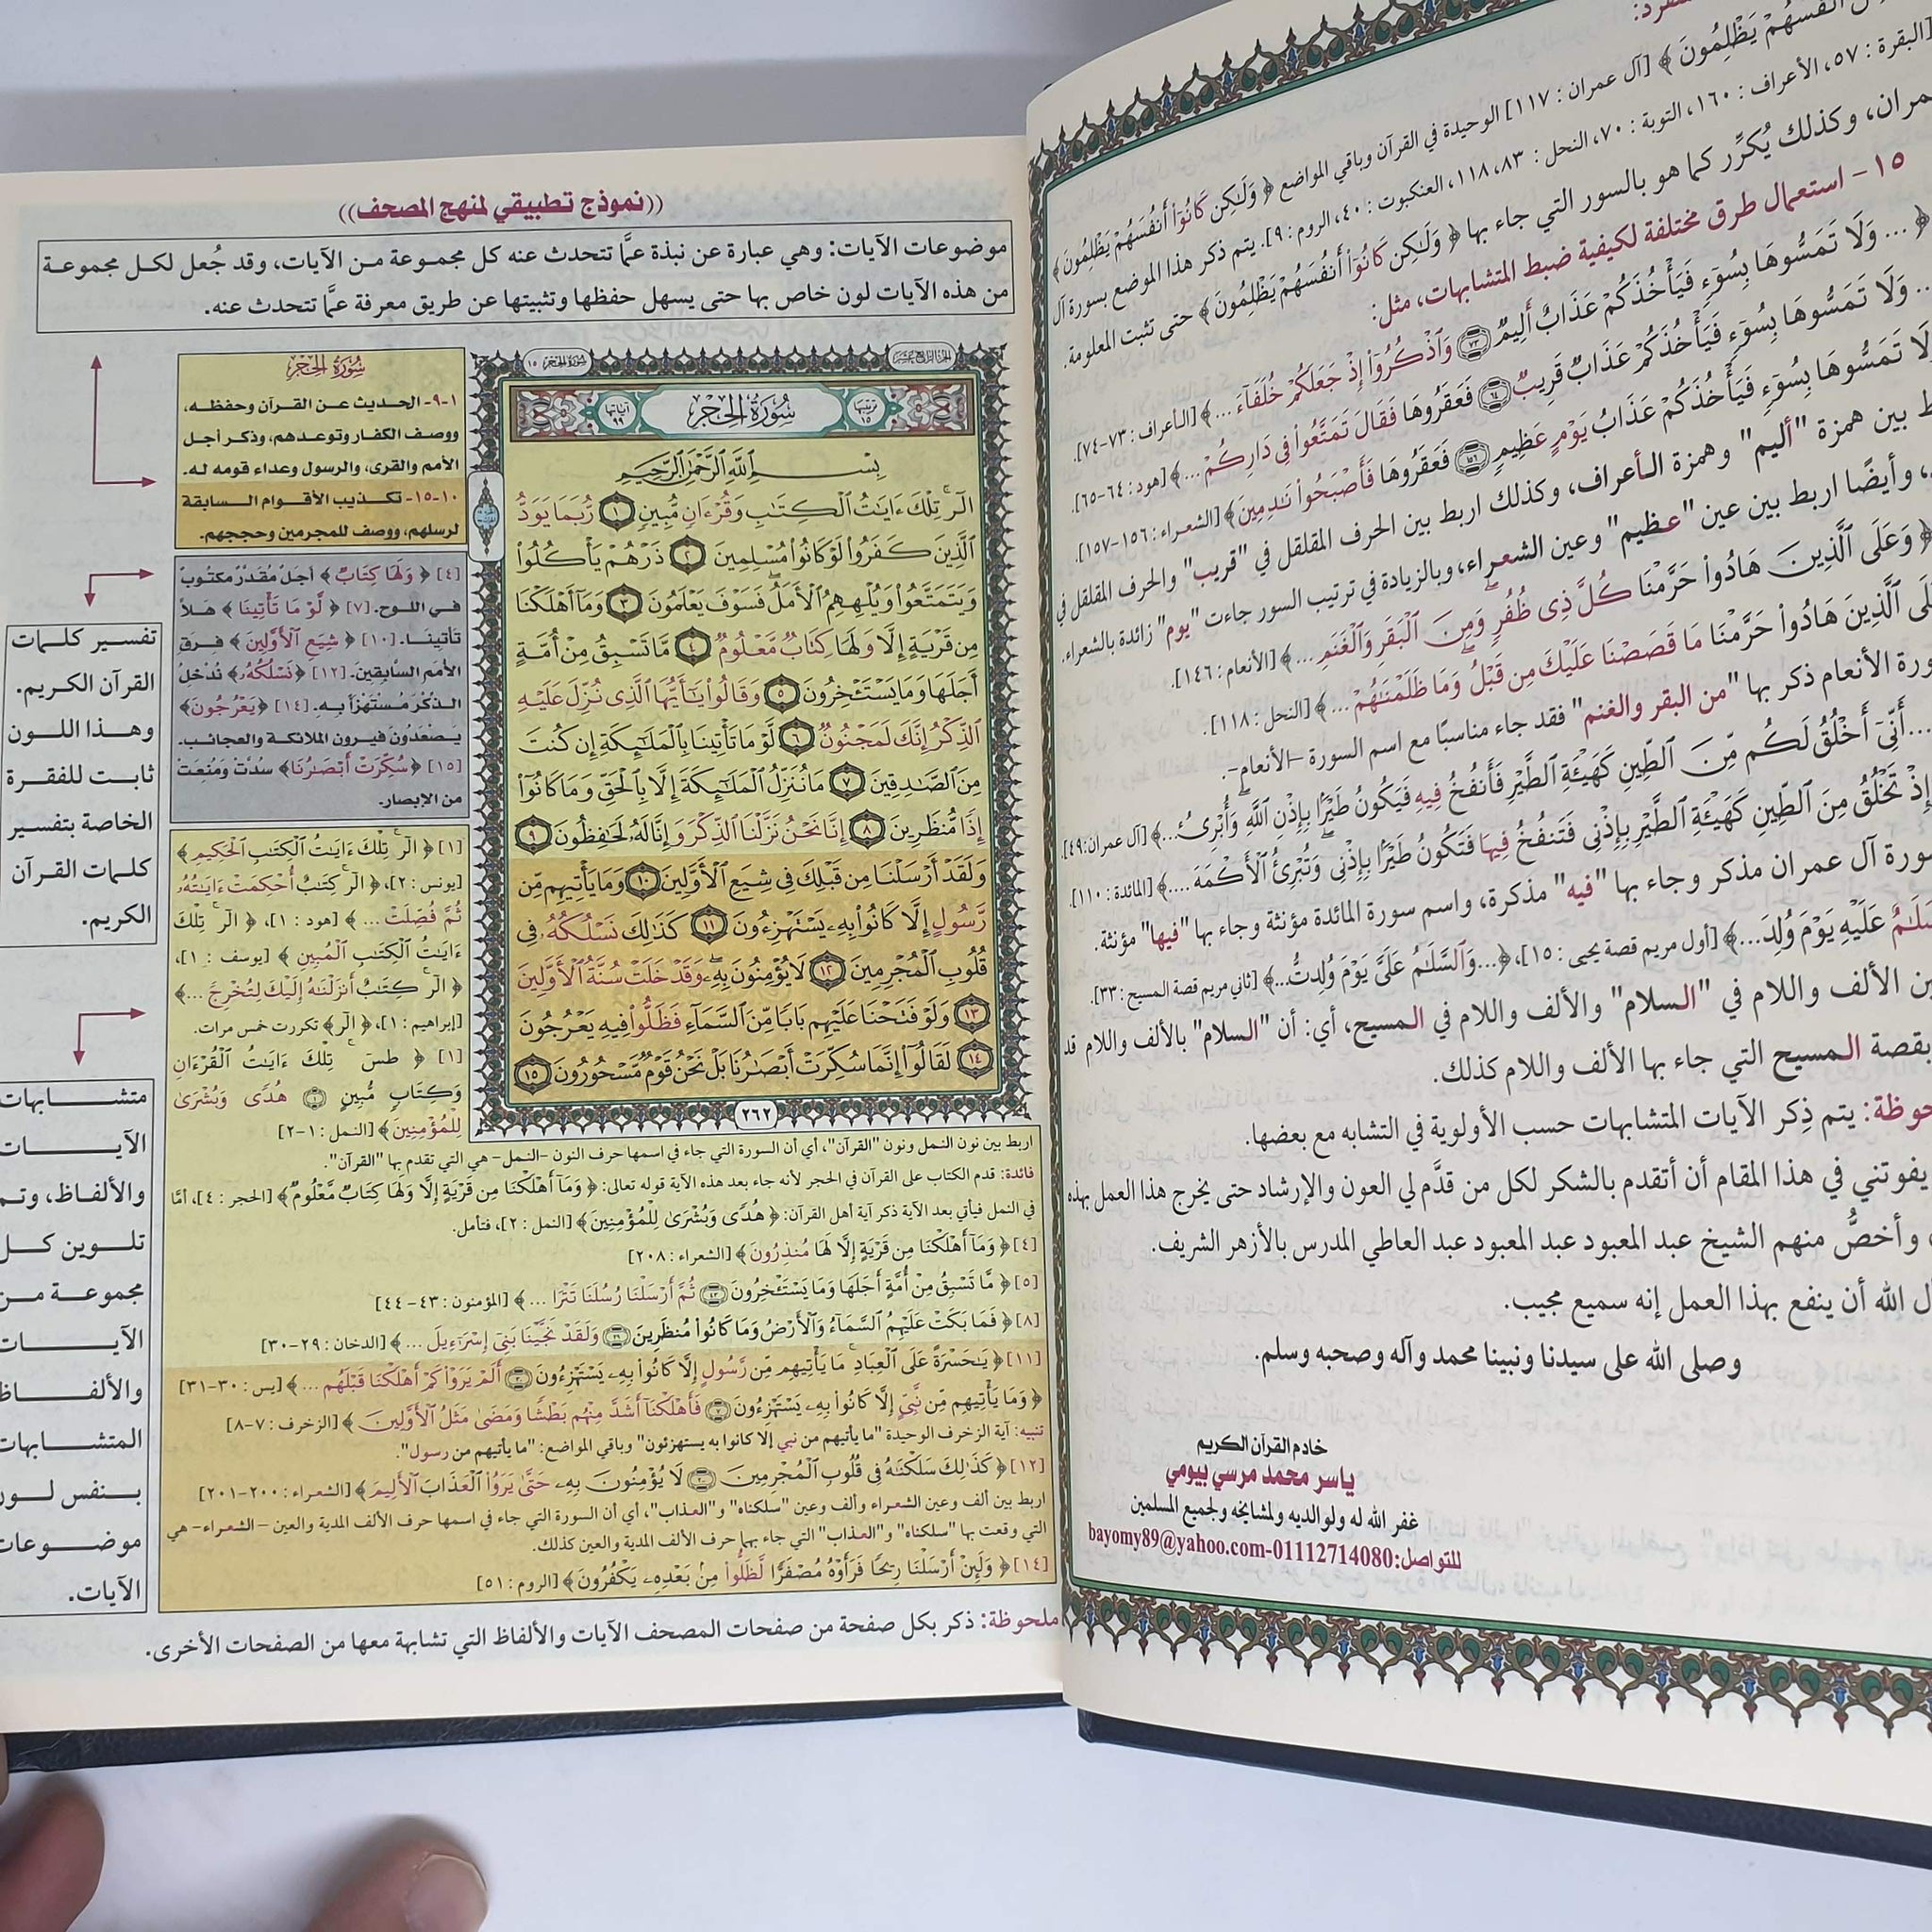 أَنفُسَهُمْ يَظْلِمُونَ ﴾ [آل عمران : ١١٧] الوحيدة في القرآن وباقي المواضع ﴿ وَلَـٰكِن كَانُوٓا۟ أَنفُسَهُمْ يَظْلِمُونَ ﴾
[البقرة : ٥٧، الأعراف : ١٦٠، التوبة : ٧٠، النحل : ٨٣، ١١٨، العنكبوت : ٤٠، الروم : ٩]. يتم ذكر هذا الموضع بسورة آل
عمران، وكذلك يُكرَّر كما هو بالسور التي جاء بها ﴿ وَلَـٰكِن كَانُوٓا۟ أَنفُسَهُمْ يَظْلِمُونَ ﴾ حتى تثبت المعلومة.
١٥ - استعمال طرق مختلفة لكيفية ضبط المتشابهات، مثل:
﴿ ... وَلَا تَمَسُّوهَا بِسُوٓءٍ فَيَأْخُذَكُمْ عَذَابٌ أَلِيمٌ ٧٣ وَٱذْكُرُوٓا۟ إِذْ جَعَلَكُمْ خُلَفَآءَ ... ﴾ [الأعراف : ٧٣-٧٤].
... وَلَا تَمَسُّوهَا بِسُوٓءٍ فَيَأْخُذَكُمْ عَذَابٌ قَرِيبٌ ٦٤ فَعَقَرُوهَا فَقَالَ تَمَتَّعُوا۟ فِى دَارِكُمْ ... ﴾ [هود : ٦٤-٦٥].
لَا تَمَسُّوهَا بِسُوٓءٍ فَيَأْخُذَكُمْ عَذَابُ يَوْمٍ عَظِيمٍ ١٥٦ فَعَقَرُوهَا فَأَصْبَحُوا۟ نَـٰدِمِينَ ﴾ [الشعراء : ١٥٦-١٥٧].
بين همزة "أليم" وهمزة الأعراف، وكذلك اربط بين الحرف المقلقل في "قريب" والحرف المقلقل في
، وأيضًا اربط بين عين "عظيم" وعين الشعراء، وبالزيادة في ترتيب السور جاءت "يوم" زائدة بالشعراء.
﴿ وَعَلَى ٱلَّذِينَ هَادُوا۟ حَرَّمْنَا كُلَّ ذِى ظُفُرٍ ۖ وَمِنَ ٱلْبَقَرِ وَٱلْغَنَمِ ... ﴾ [الأنعام : ١٤٦].
ٱلَّذِينَ هَادُوا۟ حَرَّمْنَا مَا قَصَصْنَا عَلَيْكَ مِن قَبْلُ ۖ وَمَا ظَلَمْنَـٰهُمْ ... ﴾ [النحل : ١١٨].
الأنعام ذكر بها "من البقر والغنم" فقد جاء مناسبًا مع اسم السورة -الأنعام-.
... أَنِّىٓ أَخْلُقُ لَكُم مِّنَ ٱلطِّينِ كَهَيْـَٔةِ ٱلطَّيْرِ فَأَنفُخُ فِيهِ فَيَكُونُ طَيْرًۢا بِإِذْنِ ٱللَّهِ ۖ وَأُبْرِئُ ... ﴾ [آل عمران: ٤٩].
إِذْ تَخْلُقُ مِنَ ٱلطِّينِ كَهَيْـَٔةِ ٱلطَّيْرِ بِإِذْنِى فَتَنفُخُ فِيهَا فَتَكُونُ طَيْرًۢا بِإِذْنِى ۖ وَتُبْرِئُ ٱلْأَكْمَهَ .... ﴾ [المائدة : ١١٠].
آل عمران مذكر وجاء بها "فيه" مذكرة، واسم سورة المائدة مؤنثة وجاء بها "فيها" مؤنثة.
عَلَيْهِ يَوْمَ وُلِدَ... ﴾ [أول مريم قصة يحيى : ١٥]، ﴿ ...وَٱلسَّلَـٰمُ عَلَىَّ يَوْمَ وُلِدتُّ... ﴾ [ثاني مريم قصة المسيح : ٣٣].
الألف واللام في "السلام" والألف واللام في المسيح، أي: أن "السلام" بالألف واللام قد
بقصة المسيح التي جاء بها الألف واللام كذلك.
يتم ذِكر الآيات المتشابهات حسب الأولوية في التشابه مع بعضها.
يفوتني في هذا المقام أن أتقدم بالشكر لكل من قدَّم لي العون والإرشاد حتى يخرج هذا العمل بهذه
وأخصُّ منهم الشيخ عبد المعبود عبد المعبود عبد العاطي المدرس بالأزهر الشريف.
الله أن ينفع بهذا العمل إنه سميع مجيب.
وصلى الله على سيدنا ونبينا محمد وآله وصحبه وسلم.
خادم القرآن الكريم
ياسر محمد مرسي بيومي
غفر الله له ولوالديه ولمشايخه ولجميع المسلمين
للتواصل:bayomy89@yahoo.com-01112714080
((نموذج تطبيقي لمنهج المصحف))
موضوعات الآيات: وهي عبارة عن نبذة عمَّا تتحدث عنه كل مجموعة من الآيات، وقد جُعل لكل مجموعة
من هذه الآيات لون خاص بها حتى يسهل حفظها وتثبيتها عن طريق معرفة عمَّا تتحدث عنه.
الجزء الرابع عشر
سورة الحجر ١٥
ترتيبها ١٥
سُورَةُ الحِجْرِ
آياتها ٩٩
بِسْمِ ٱللَّهِ ٱلرَّحْمَـٰنِ ٱلرَّحِيمِ
الٓر ۚ تِلْكَ ءَايَـٰتُ ٱلْكِتَـٰبِ وَقُرْءَانٍ مُّبِينٍ ١ رُّبَمَا يَوَدُّ
ٱلَّذِينَ كَفَرُوا۟ لَوْ كَانُوا۟ مُسْلِمِينَ ٢ ذَرْهُمْ يَأْكُلُوا۟
وَيَتَمَتَّعُوا۟ وَيُلْهِهِمُ ٱلْأَمَلُ ۖ فَسَوْفَ يَعْلَمُونَ ٣ وَمَآ أَهْلَكْنَا
مِن قَرْيَةٍ إِلَّا وَلَهَا كِتَابٌ مَّعْلُومٌ ٤ مَّا تَسْبِقُ مِنْ أُمَّةٍ
أَجَلَهَا وَمَا يَسْتَـْٔخِرُونَ ٥ وَقَالُوا۟ يَـٰٓأَيُّهَا ٱلَّذِى نُزِّلَ عَلَيْهِ
ٱلذِّكْرُ إِنَّكَ لَمَجْنُونٌ ٦ لَّوْ مَا تَأْتِينَا بِٱلْمَلَـٰٓئِكَةِ إِن كُنتَ
مِنَ ٱلصَّـٰدِقِينَ ٧ مَا نُنَزِّلُ ٱلْمَلَـٰٓئِكَةَ إِلَّا بِٱلْحَقِّ وَمَا كَانُوٓا۟
إِذًا مُّنظَرِينَ ٨ إِنَّا نَحْنُ نَزَّلْنَا ٱلذِّكْرَ وَإِنَّا لَهُۥ لَحَـٰفِظُونَ ٩
وَلَقَدْ أَرْسَلْنَا مِن قَبْلِكَ فِى شِيَعِ ٱلْأَوَّلِينَ ١٠ وَمَا يَأْتِيهِم مِّن
رَّسُولٍ إِلَّا كَانُوا۟ بِهِۦ يَسْتَهْزِءُونَ ١١ كَذَٰلِكَ نَسْلُكُهُۥ فِى
قُلُوبِ ٱلْمُجْرِمِينَ ١٢ لَا يُؤْمِنُونَ بِهِۦ ۖ وَقَدْ خَلَتْ سُنَّةُ ٱلْأَوَّلِينَ
١٣ وَلَوْ فَتَحْنَا عَلَيْهِم بَابًا مِّنَ ٱلسَّمَآءِ فَظَلُّوا۟ فِيهِ يَعْرُجُونَ
١٤ لَقَالُوٓا۟ إِنَّمَا سُكِّرَتْ أَبْصَـٰرُنَا بَلْ نَحْنُ قَوْمٌ مَّسْحُورُونَ ١٥
٢٦٢
سُورَةُ الحِجْرِ
١-٩- الحديث عن القرآن وحفظه،
ووصف الكفار وتوعدهم، وذكر أجل
الأمم والقرى، والرسول وعداء قومه له.
١٠-١٥- تكذيب الأقوام السابقة
لرسلهم، ووصف للمجرمين وحججهم.
[٤] ﴿ وَلَهَا كِتَابٌ ﴾ أجل مُقَدَّرٌ مكتوبٌ
في اللوح. [٧] ﴿ لَّوْ مَا تَأْتِينَا ﴾ هَلاَّ
تأتينا. [١٠] ﴿ شِيَعِ ٱلْأَوَّلِينَ ﴾ فِرَقِ
الأمم السابقين. [١٢] ﴿ نَسْلُكُهُۥ ﴾ نُدْخِلُ
الذكْرَ مُسْتَهْزَأً به. [١٤] ﴿ يَعْرُجُونَ ﴾
يَصْعَدُونَ فيرون الملائكة والعجائب.
[١٥] ﴿ سُكِّرَتْ أَبْصَـٰرُنَا ﴾ سُدَّتْ ومُنِعَتْ
من الإبصار.
تفسير كلمات
القرآن الكريم.
وهذا اللون
ثابت للفقرة
الخاصة بتفسير
كلمات القرآن
الكريم.
[١] ﴿ الٓر ۚ تِلْكَ ءَايَـٰتُ ٱلْكِتَـٰبِ ٱلْحَكِيمِ ﴾
[يونس : ٢]، ﴿ الٓر ۚ كِتَـٰبٌ أُحْكِمَتْ ءَايَـٰتُهُۥ
ثُمَّ فُصِّلَتْ ... ﴾ [هود : ١]، ﴿ الٓر ۚ تِلْكَ
ءَايَـٰتُ ٱلْكِتَـٰبِ ٱلْمُبِينِ ﴾ [يوسف : ١]،
﴿ الٓر ۚ كِتَـٰبٌ أَنزَلْنَـٰهُ إِلَيْكَ لِتُخْرِجَ ... ﴾
[إبراهيم : ١]، ﴿ الٓر ﴾ تكررت خمس مرات.
[١] ﴿ طسٓ ۚ تِلْكَ ءَايَـٰتُ ٱلْقُرْءَانِ
وَكِتَابٍ مُّبِينٍ ١ هُدًى وَبُشْرَىٰ
لِلْمُؤْمِنِينَ ﴾ [النمل : ١-٢]
اربط بين نون النمل ونون "القرآن"، أي أن السورة التي جاء في اسمها حرف النون -النمل- هي التي تقدم بها "القرآن".
فائدة: قدم الكتاب على القرآن في الحجر لأنه جاء بعد هذه الآية قوله تعالى: ﴿ وَمَآ أَهْلَكْنَا مِن قَرْيَةٍ إِلَّا وَلَهَا كِتَابٌ مَّعْلُومٌ ﴾ [الحجر : ٤]، أمَّا
في النمل فيأتي بعد الآية ذكر آية أهل القرآن: ﴿ هُدًى وَبُشْرَىٰ لِلْمُؤْمِنِينَ ﴾ [النمل : ٢]، فتأمل.
[٤] ﴿ وَمَآ أَهْلَكْنَا مِن قَرْيَةٍ إِلَّا لَهَا مُنذِرُونَ ﴾ [الشعراء : ٢٠٨]
[٥] ﴿ مَّا تَسْبِقُ مِنْ أُمَّةٍ أَجَلَهَا وَمَا يَسْتَـْٔخِرُونَ ٤٣ ثُمَّ أَرْسَلْنَا رُسُلَنَا تَتْرَا ... ﴾ [المؤمنون : ٤٣-٤٤]
[٨] ﴿ فَمَا بَكَتْ عَلَيْهِمُ ٱلسَّمَآءُ وَٱلْأَرْضُ وَمَا كَانُوا۟ مُنظَرِينَ ٢٩ وَلَقَدْ نَجَّيْنَا بَنِىٓ إِسْرَٰٓءِيلَ ... ﴾ [الدخان : ٢٩-٣٠]
[١١] ﴿ يَـٰحَسْرَةً عَلَى ٱلْعِبَادِ ۚ مَا يَأْتِيهِم مِّن رَّسُولٍ إِلَّا كَانُوا۟ بِهِۦ يَسْتَهْزِءُونَ ٣٠ أَلَمْ يَرَوْا۟ كَمْ أَهْلَكْنَا قَبْلَهُم ... ﴾ [يس : ٣٠-٣١]
﴿ وَمَا يَأْتِيهِم مِّن نَّبِىٍّ إِلَّا كَانُوا۟ بِهِۦ يَسْتَهْزِءُونَ ٧ فَأَهْلَكْنَآ أَشَدَّ مِنْهُم بَطْشًا وَمَضَىٰ مَثَلُ ٱلْأَوَّلِينَ ﴾ [الزخرف : ٧-٨]
تنبيه: آية الزخرف الوحيدة "ما يأتيهم من نبي إلا كانوا به يستهزئون" وباقي المواضع: "ما يأتيهم من رسول".
[١٢] ﴿ كَذَٰلِكَ سَلَكْنَـٰهُ فِى قُلُوبِ ٱلْمُجْرِمِينَ ٢٠٠ لَا يُؤْمِنُونَ بِهِۦ حَتَّىٰ يَرَوُا۟ ٱلْعَذَابَ ٱلْأَلِيمَ ﴾ [الشعراء : ٢٠٠-٢٠١]
اربط بين ألف وعين الشعراء وألف وعين "سلكناه" و"العذاب"، أي أن السورة التي جاء في اسمها حرف الألف المدية والعين - الشعراء- هي
التي وقعت بها "سلكناه" و"العذاب" التي جاء بهما حرف الألف المدية والعين كذلك.
[١٤] ﴿ وَلَئِنْ أَرْسَلْنَا رِيحًا فَرَأَوْهُ مُصْفَرًّا لَّظَلُّوا۟ مِنۢ بَعْدِهِۦ يَكْفُرُونَ ﴾ [الروم : ٥١]
متشابهات
الآيات
والألفاظ، وتم
تلوين كل
مجموعة من
الآيات
والألفاظ
المتشابهات
بنفس لون
موضوعات
الآيات.
ملحوظة: ذكر بكل صفحة من صفحات المصحف الآيات والألفاظ التي تشابهة معها من الصفحات الأخرى.